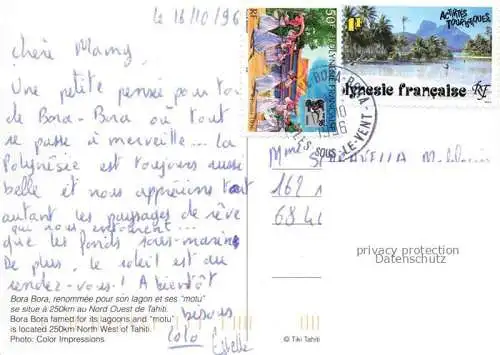 le 18/10/96
Chère Mamy,
Une petite pensée pour toi
de Bora-Bora où tout
se passe à merveille... La
Polynésie est toujours aussi
belle et nous apprécions tout
autant les paysages de rêve
qui nous entourent...
que les fonds sous-marins
De plus, le soleil est au
rendez-vous! A bientôt
bisous
Lolo
Estelle
Bora Bora, renommée pour son lagon et ses "motu"
se situe à 250km au Nord Ouest de Tahiti.
Bora Bora famed for its lagoons and "motu"
is located 250km North West of Tahiti.
Photo: Color Impressions.
50F POLYNÉSIE FRANÇAISE
RF
1F
ACTIVITES TOURISTIQUES
Polynésie française
RF
BORA-BORA
10
1996
ILES SOUS-LE-VENT
Mme
162
privacy protection
Datenschutz
© Tiki Tahiti